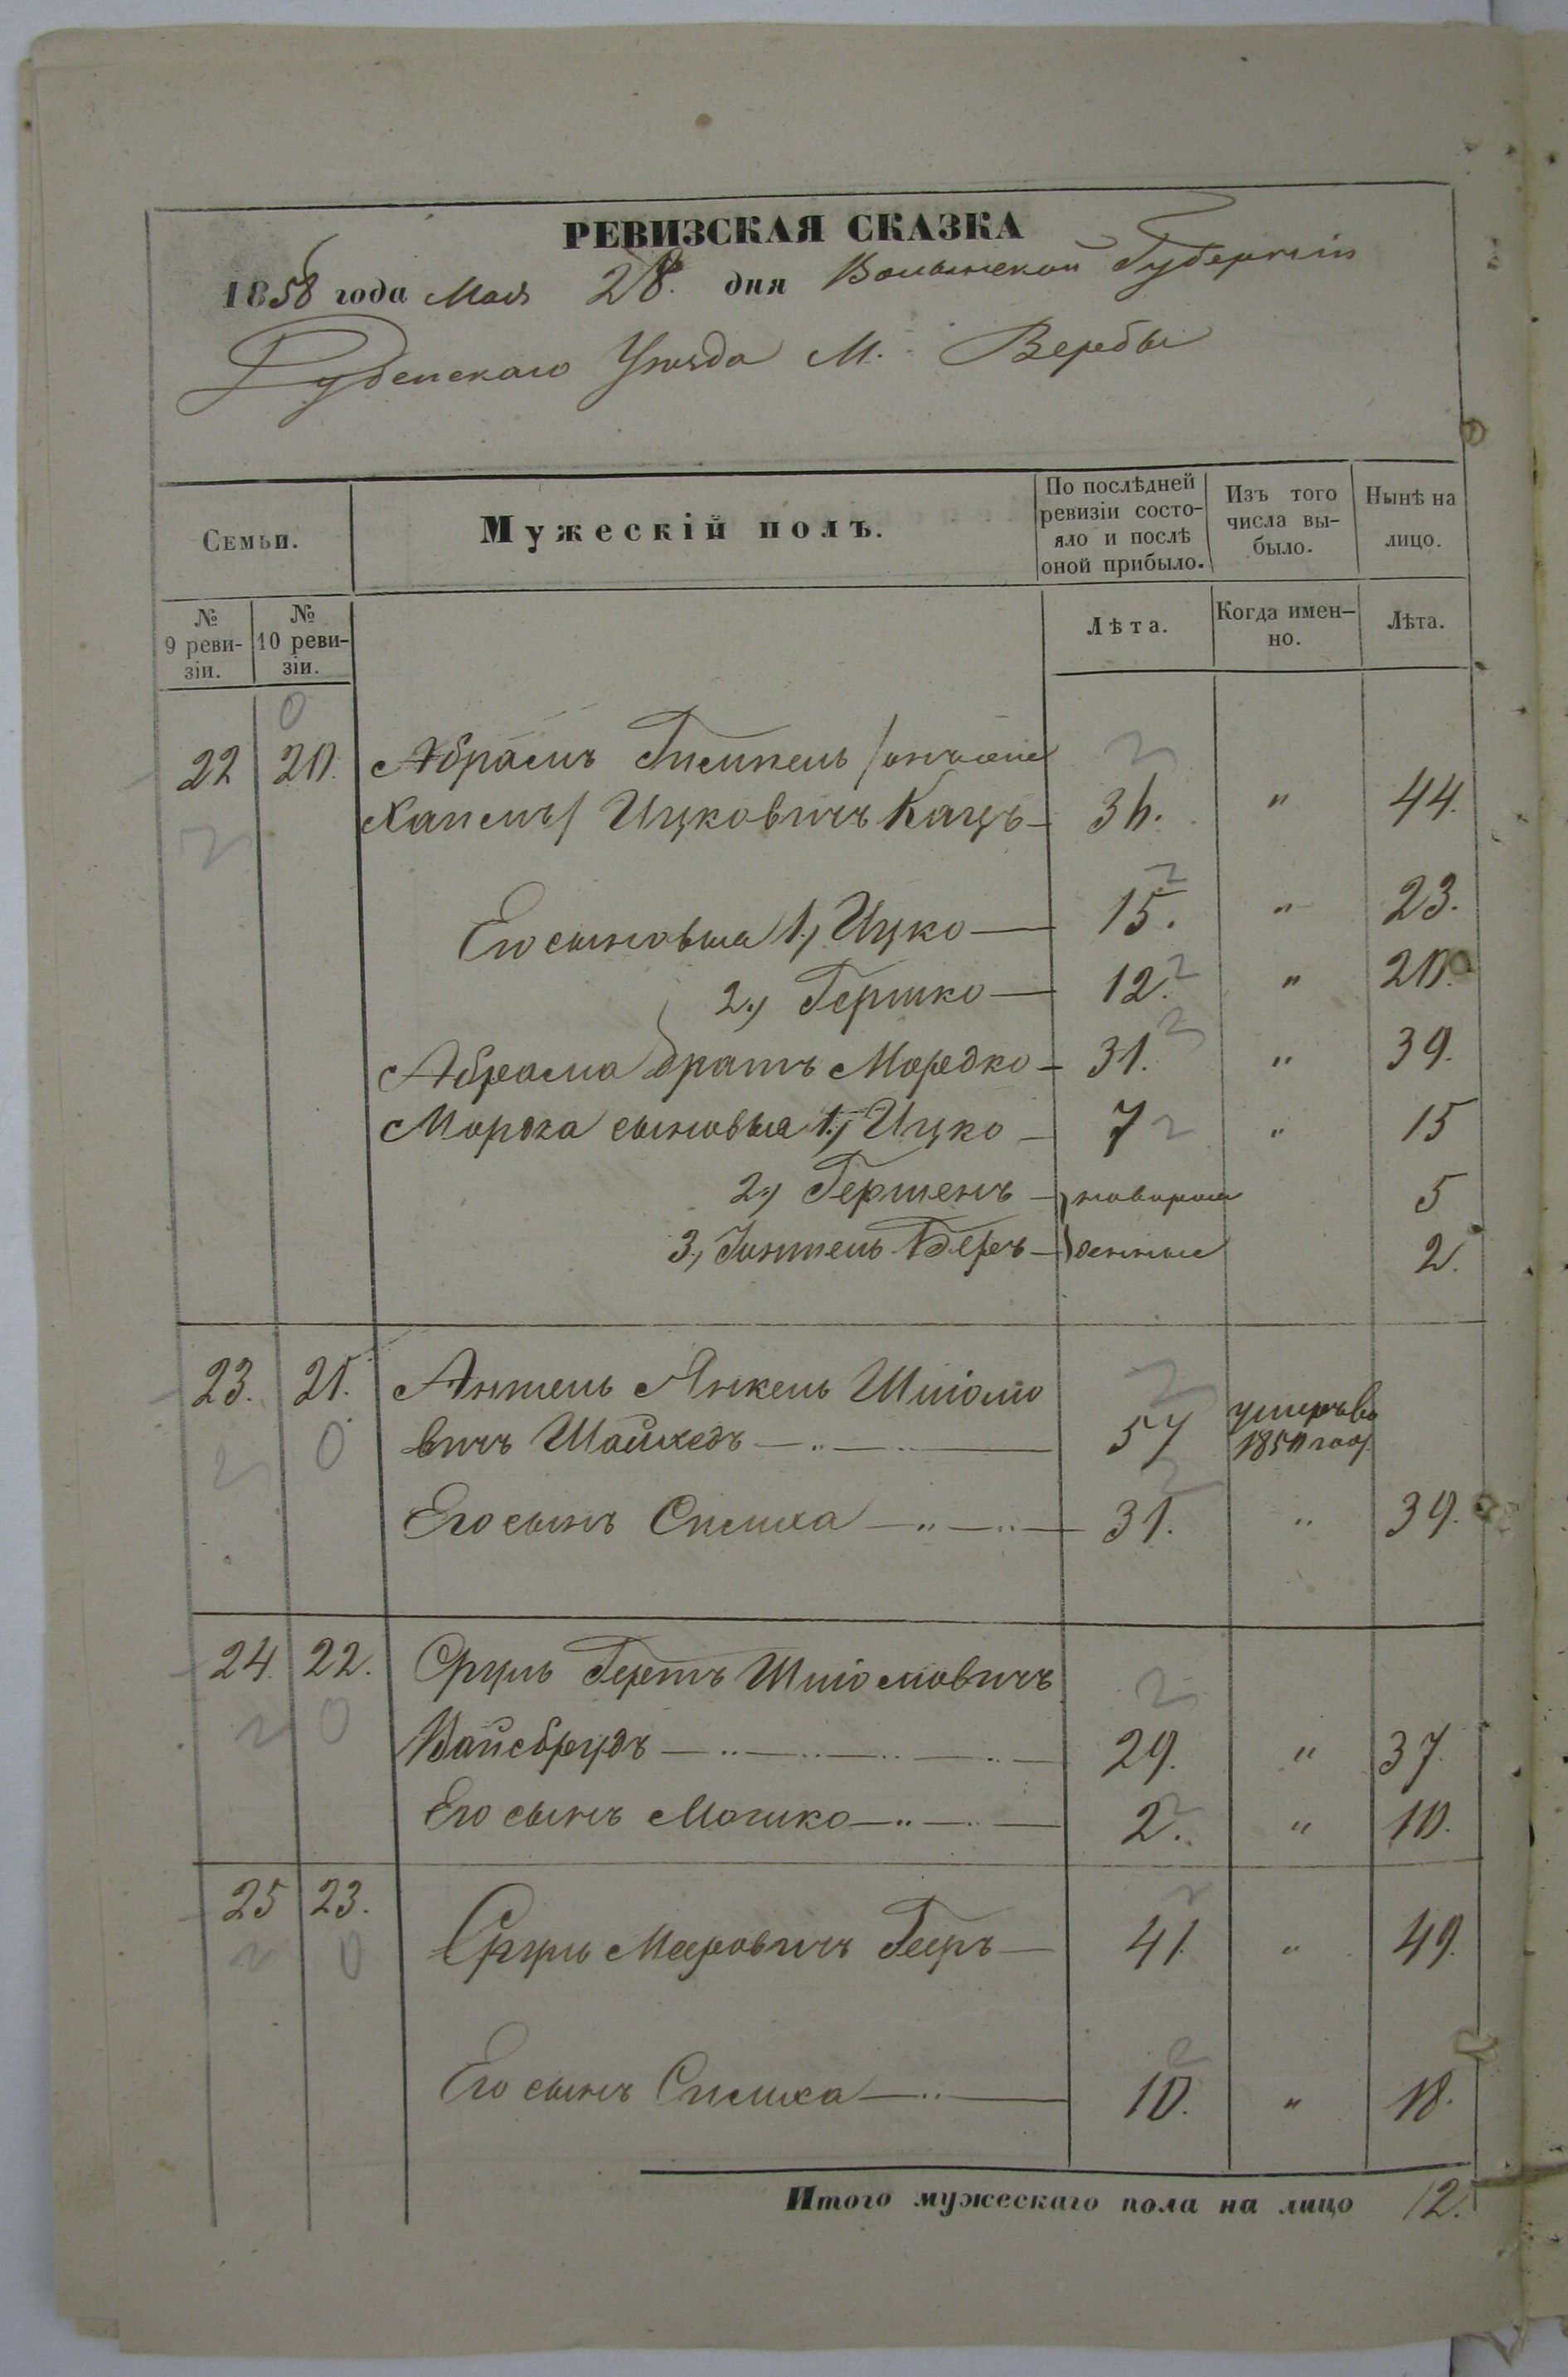 РЕВИЗСКАЯ СКАЗКА
1858 года Мая 28. дня Волынской Губерніи
Дубенскаго Уѣзда М. Вербы
Семьи.
Мужескій полъ.
По послѣдней ревизіи состо-
яло и послѣ оной прибыло.
Изъ того числа вы-
было.
Нынѣ на лицо.
№ 9 реви-
зіи.
№ 10 реви-
зіи.
Лѣта.
Когда имен-
но.
Лѣта.
22 20. Абрамъ
Ицковичъ Кацъ 36. " 44.
Его сыновья 1, Ицко 15. " 23.
2, Гершко 12. " 20.
Абрама братъ Мордко 31. " 39.
Мордка сыновья 1, Ицко 7 " 15
2, Гершенъ новорож 5
3, Беръ денные 2.
23. 21. Янкель Шліомо
вичъ 57 умеръ въ
1850 год.
Его сынъ Симха 31. " 39.
24. 22. Сруль Шліомовичъ
Вайсбрудъ 29. " 37.
Его сынъ Мошко 2. " 10.
25 23.
Сруль Меровичъ 41. " 49.
Его сынъ Симха 10. " 18.
Итого мужескаго пола на лицо 12.